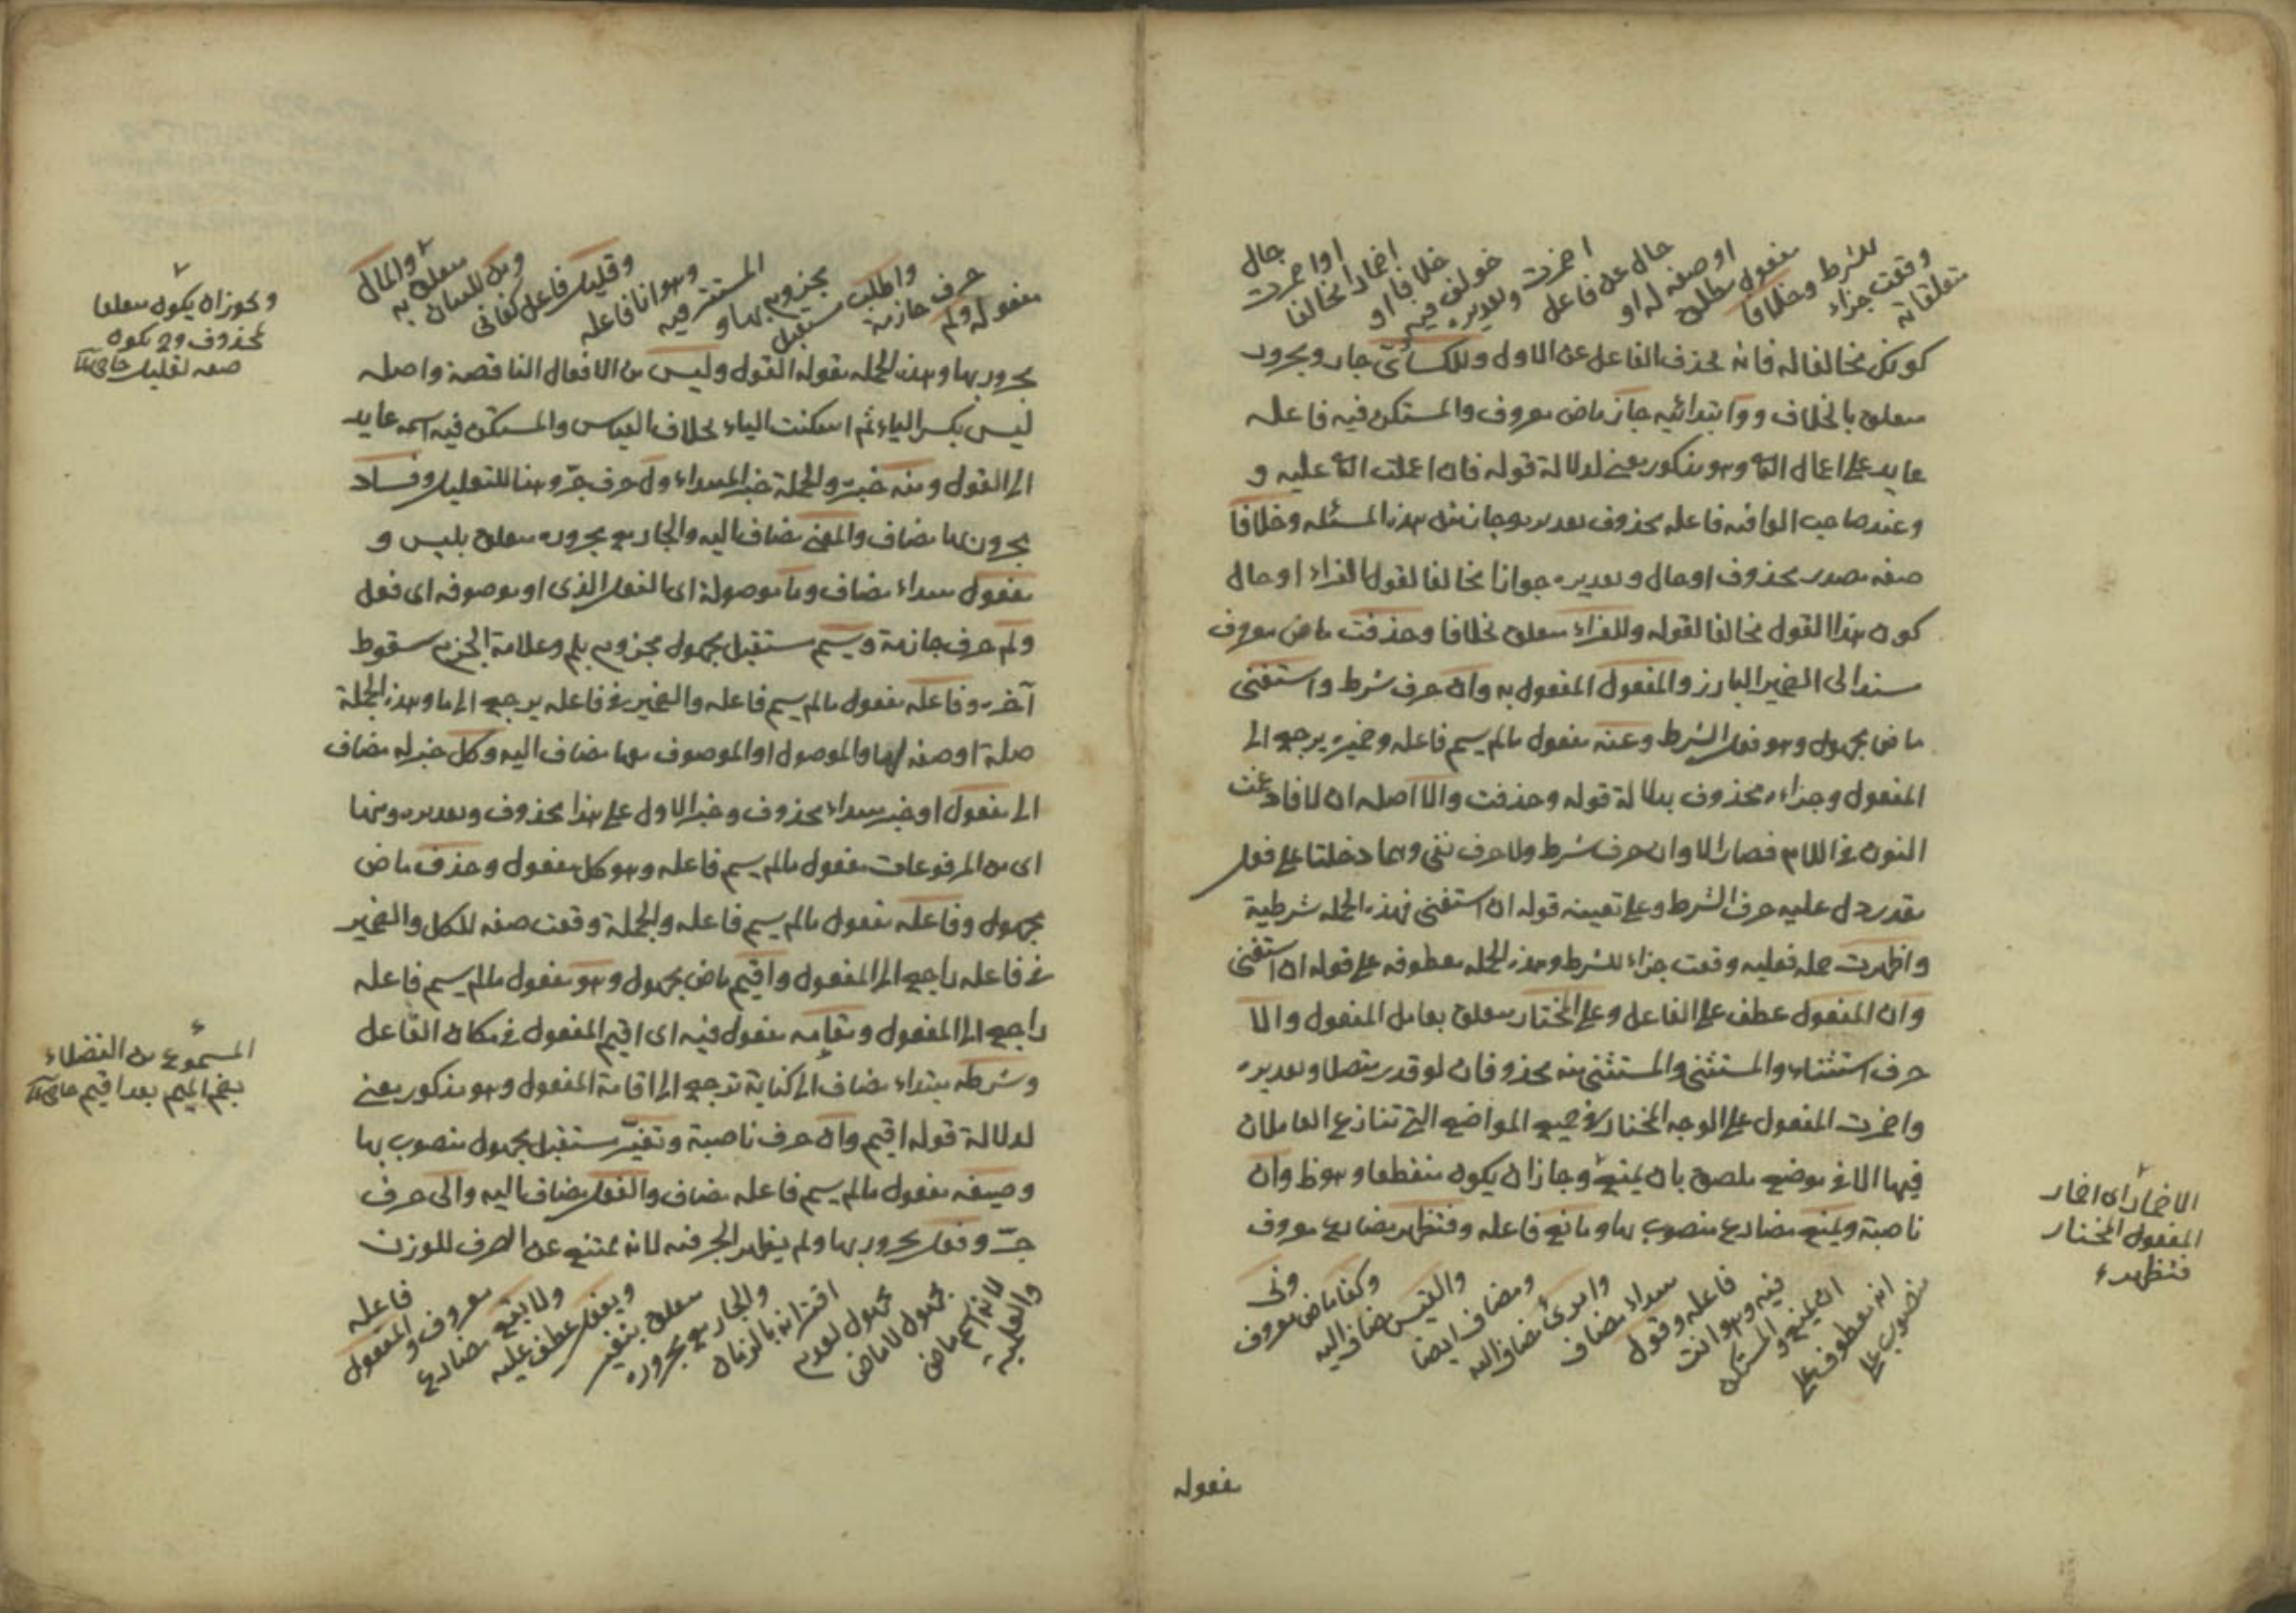 متعلقاته
وقعت جزاء
للشرط وخلافا
مفعول مطلق
او صفة له او
حال عن فاعل
اضمرت وتقديره
خولف فيه
خلافا او
اضمارا مخالفا
او اضمرت
حال
كونك مخالفا له فانه يحذف الفاعل عن الاول وللكسائي جار ومجرور
متعلق بالخلاف ووا ابتدائيه جاز ماض معروف والمستكن فيه فاعله
عايد على اعمال الثا وهو مذكور يعني لدلالة قوله فان اعملت الثا عليه و
وعند صاحب الوافيه فاعله محذوف تقديره وجاز مثل هذه المسئله وخلافا
صفه مصدر محذوف او حال وتقديره جوازا مخالفا لقول الفراء او حال
كون هذا القول مخالفا لقوله وللفراء متعلق بخلافا وحذفت ماض معروف
مسند الى الضمير البارز والمفعول المفعول به وان حرف شرط واستغنى
ماض مجهول وهو فعل الشرط وعنه مفعول مالم يسم فاعله وضميره يرجع الى
المفعول وجزاءه محذوف بدلالة قوله وحذفت والا اصله ان لا فادغمت
النون في اللام فصار الا وان حرف شرط ولا حرف نفي وهما دخلتا على فعل
مقدر دل عليه حرف الشرط وعلى تعيينه قوله ان استغنى فهذه الجمله شرطية
واظهرت جمله فعليه وقعت جزاء للشرط وهذه الجمله معطوفه على قوله ان استغنى
وان المفعول عطف على الفاعل وعلى المختار متعلق بعامل المفعول والا
حرف استثناء والمستثنى والمستثنى منه محذوفان لو قدر متصلا وتقديره
واضمرت المفعول على الوجه المختار في جميع المواضع التي تنازع العاملان
فيها الا في موضع ملصق بان يمنع وجاز ان يكون منقطعا وهو ظ وان
ناصبة ويمنع مضارع منصوب بها ومانع فاعله وفتظهر مضارع معروف
منصوب على
انه معطوف على
ان يمنع والمستكن
فيه وهو انت
فاعله وقول
مبتداء مضاف
وامرئ مضاف اليه
ومضاف ايضا
والقيس مضاف اليه
وكفا ماض معروف
ونى
الاضمار اى اضمار
المفعول المختار
فتظهره
مفعوله
مفعوله ولم
حرف جازمة
واطلب مستقبل
مجزوم بها و
المستتر فيه
وهو انا فاعله
وقليل فاعل كفانى
ومن للبيان
متعلق به
والمال
مجرور بها وهذه الجمله مقولة القول وليس من الافعال الناقصة واصله
ليس بكسر الياء ثم اسكنت الياء بخلاف القياس والمستكن فيه اسمه عايد
الى القول ومنه خبره والجملة خبر المبتداء ول حرف جرّ وهنا للتعليل وفساد
مجرور بها مضاف والمعنى مضاف اليه والجار مع مجروره متعلق بليس و
مفعول مبتداء مضاف وما موصولة اى الفعل الذى او موصوفه اى فعل
ولم حرف جازمة ويسم مستقبل مجهول مجزوم بلم وعلامة الجزم سقوط
آخره وفاعله مفعول مالم يسم فاعله والضمير في فاعله يرجع الى ما وهذه الجملة
صلة او صفه لها والموصول او الموصوف معها مضاف اليه وكل خبر له مضاف
الى مفعول او خبر مبتداء محذوف وخبر الاول على هذا محذوف وتقديره ومنها
اى من المرفوعات مفعول مالم يسم فاعله وهو كل مفعول وحذف ماض
مجهول وفاعله مفعول مالم يسم فاعله والجملة وقعت صفه للكل والضمير
في فاعله راجع الى المفعول واقيم ماض مجهول وهو مفعول مالم يسم فاعله
راجع الى المفعول ومقامه مفعول فيه اى اقيم المفعول في مكان الفاعل
وشرطه مبتداء مضاف الى كناية ترجع الى اقامة المفعول وهو مذكور يعني
لدلالة قوله اقيم وان حرف ناصبة وتغيّر مستقبل مجهول منصوب بها
وصيغه مفعول مالم يسم فاعله مضاف والفعل مضاف اليه والى حرف
جرّ وفعل مجرور بها ولم يظهر الجر فيه لانه ممتنع عن الصرف للوزن
والعلميه
لانه اسم ماض
مجهول لا ماض
مجهول لعدم
اقترانه بالزمان
والجار مع مجروره
متعلق بتغير
ويفعل عطف عليه
ولا يقع مضارع
معروف والمفعول
فاعله
ويجوز ان يكون متعلقا
بمحذوف وح يكون
صفه لقليل
المسموع من الفضلاء
بضم الميم بعد اقيم